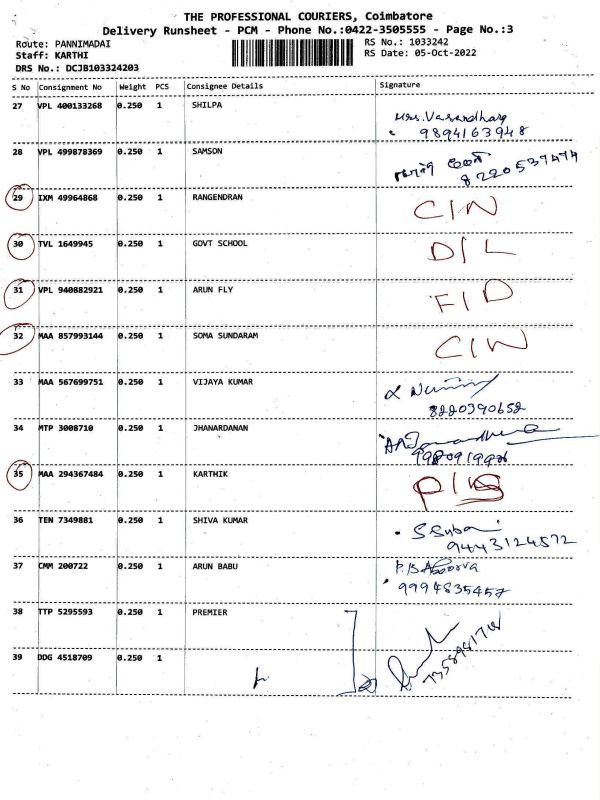 THE PROFESSIONAL COURIERS, Coimbatore
Delivery Runsheet - PCM - Phone No.:0422-3505555 - Page No.:3
Route: PANNIMADAI RS No.: 1033242
Staff: KARTHI RS Date: 05-Oct-2022
DRS No.: DCJB103324203
S No Consignment No Weight PCS Consignee Details Signature
27 VPL 400133268 0.250 1 SHILPA
9894163948
28 VPL 499878369 0.250 1 SAMSON
8220537474
29 IXM 49964868 0.250 1 RANGENDRAN C/N
30 TVL 1649945 0.250 1 GOVT SCHOOL D/L
31 VPL 940882921 0.250 1 ARUN FLY F/D
32 MAA 857993144 0.250 1 SOMA SUNDARAM C/N
33 MAA 567699751 0.250 1 VIJAYA KUMAR
8220390652
34 MTP 3008710 0.250 1 JHANARDANAN
35 MAA 294367484 0.250 1 KARTHIK
36 TEN 7349881 0.250 1 SHIVA KUMAR
9443124572
37 CMM 200722 0.250 1 ARUN BABU
9994835457
38 TTP 5295593 0.250 1 PREMIER
39 DDG 4518709 0.250 1